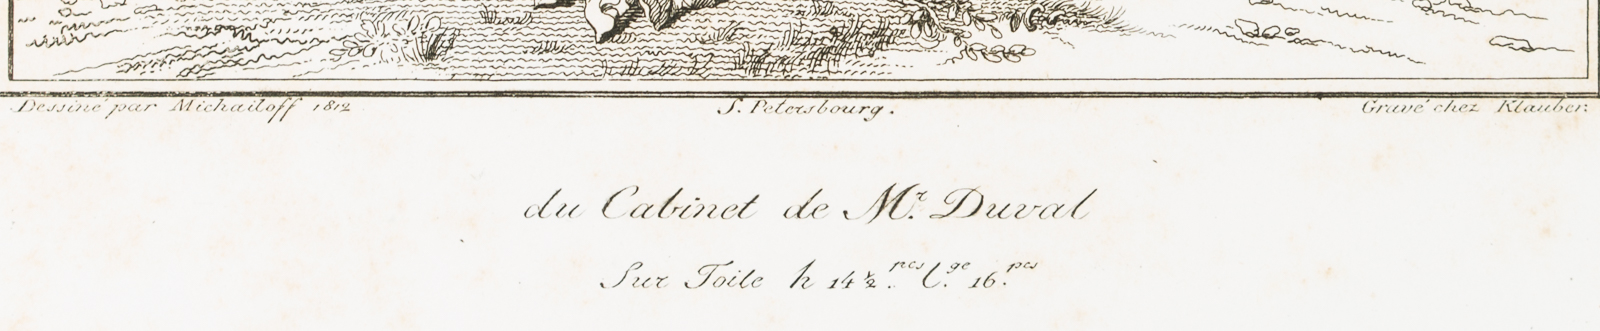 Dessiné par Michailoff 1812 S. Petersbourg. Gravé chez Klauber.
du Cabinet de Mr. Duval
Sur Toile h 14 ½ pces. l.ge 16. pces